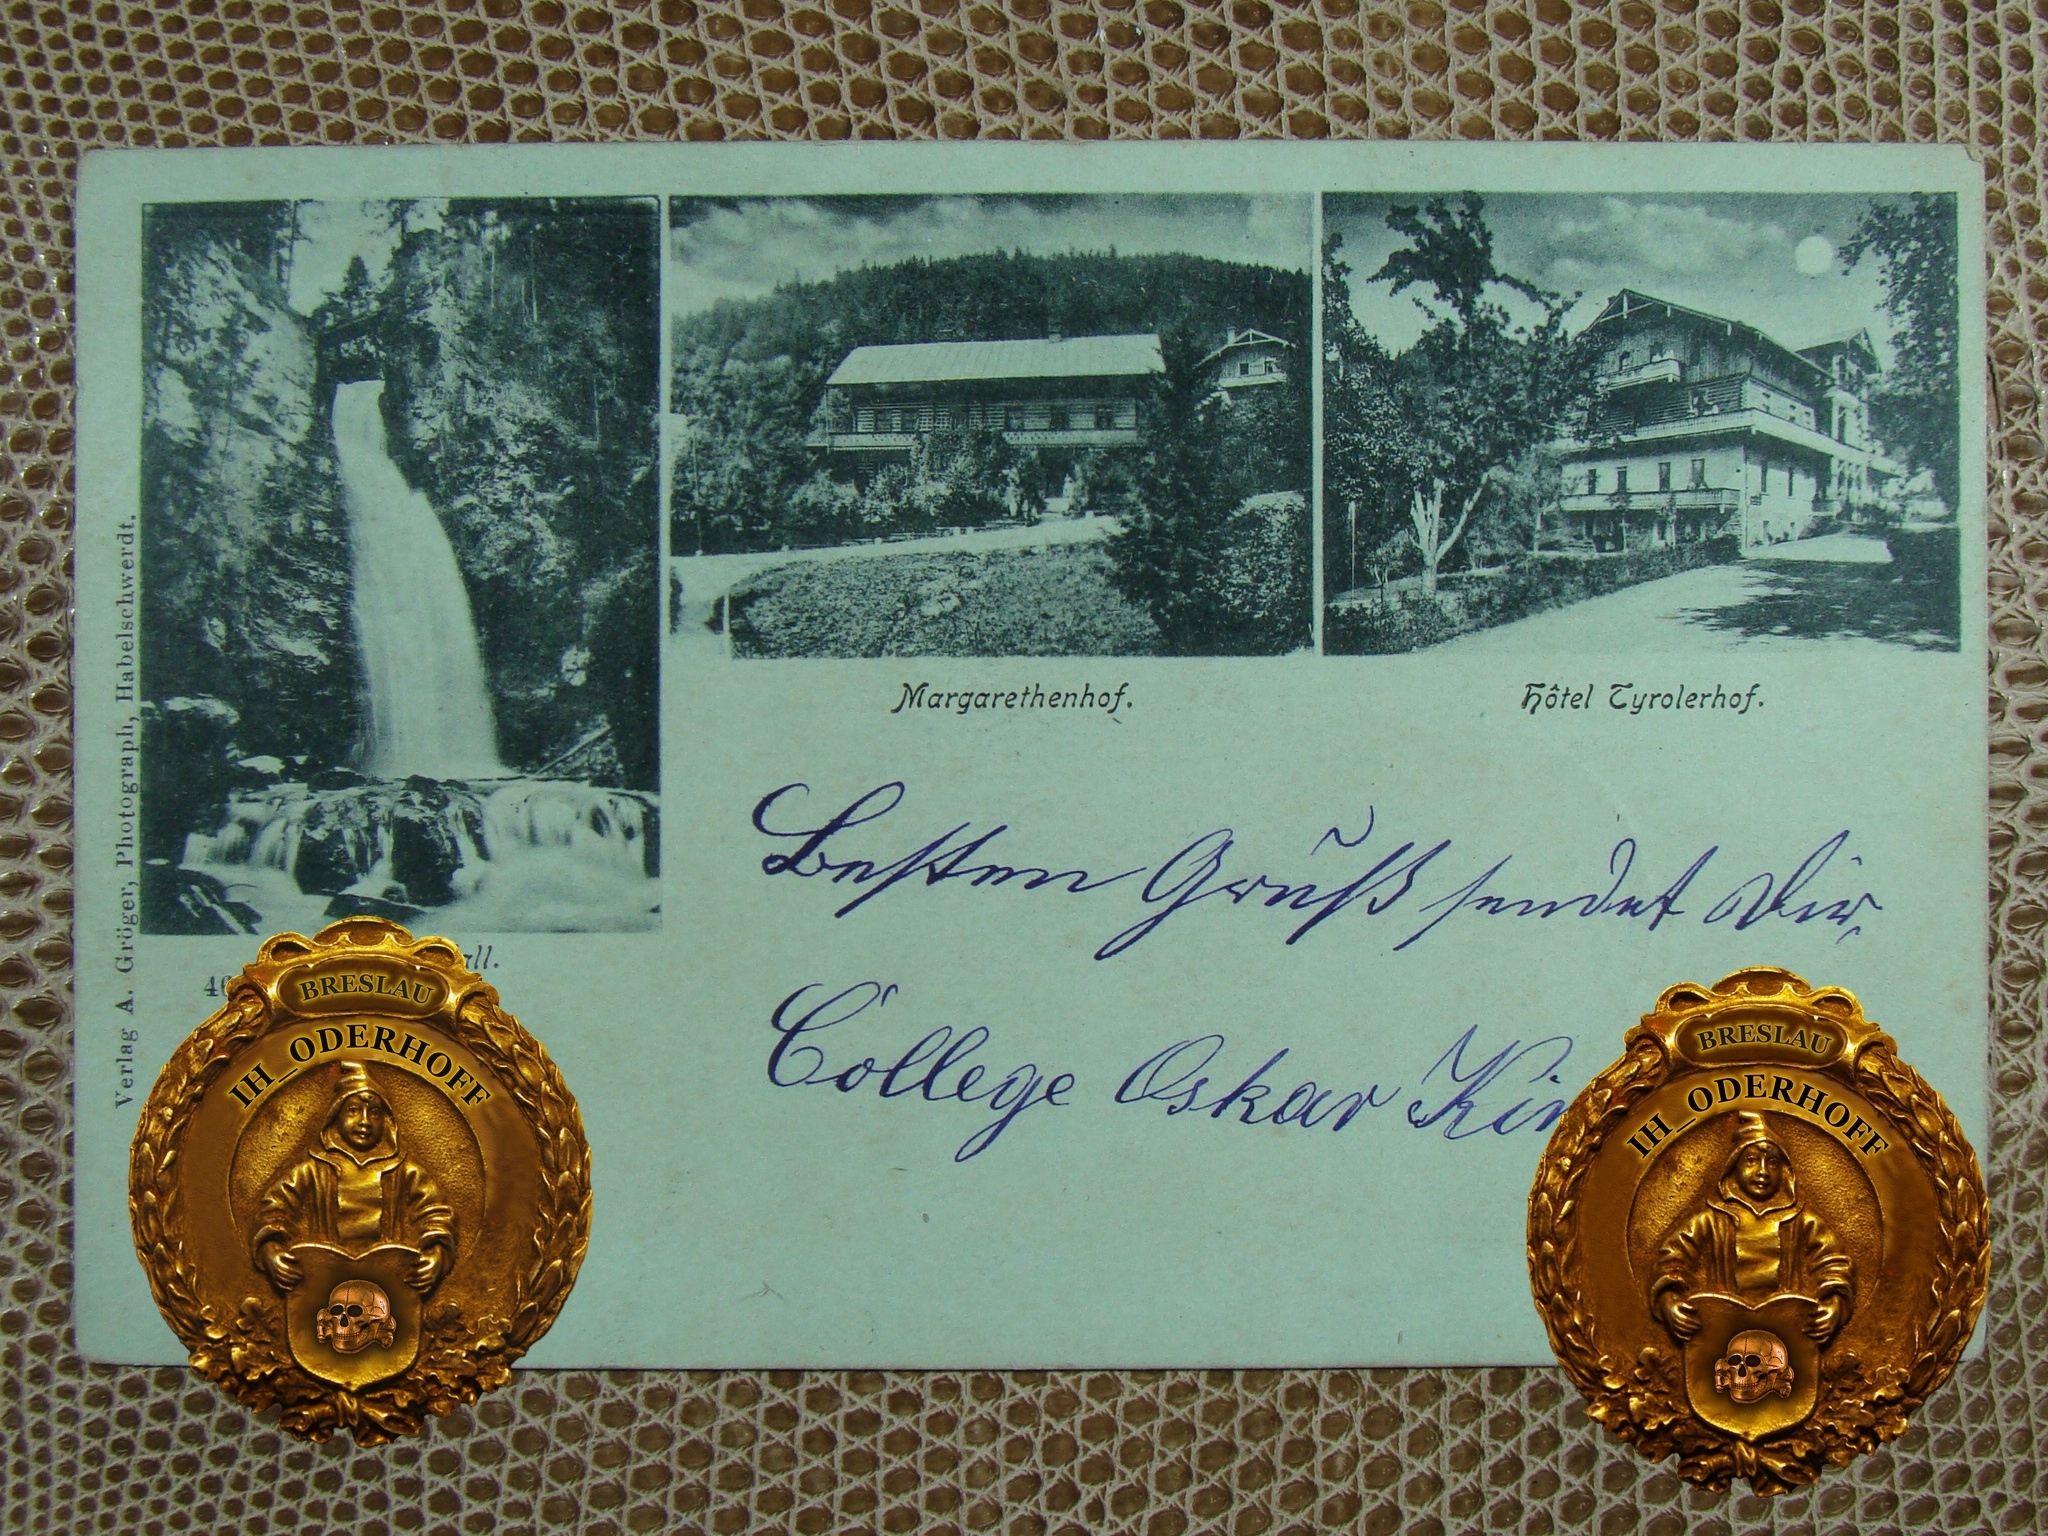 Verlag A. Gröger, Photograph, Habelschwerdt.
Margarethenhof.
Hôtel Tyrolerhof.
Besten Gruß sendet Dir
College Oskar
BRESLAU
IH_ODERHOFF
BRESLAU
IH_ODERHOFF